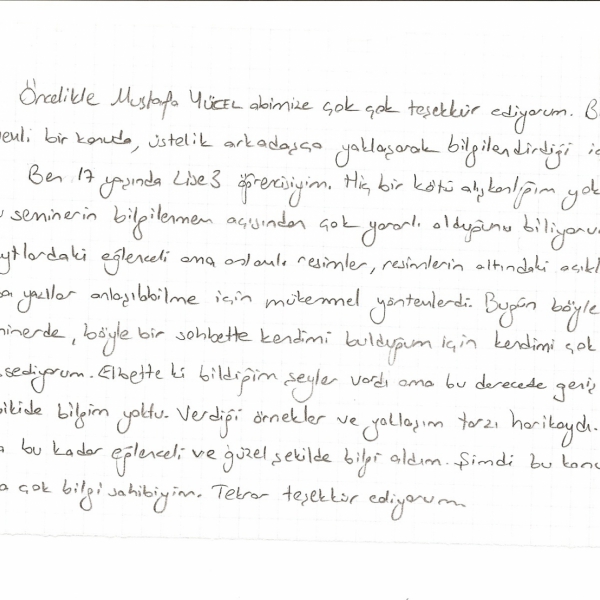 Öncelikle Mustafa YÜCEL abimize çok çok teşekkür ediyorum. B
bir konuda, üstelik arkadaşça yaklaşarak bilgilendirdiği iç
Ben 17 yaşında Lise 3 öğrencisiyim. Hiç bir kötü alışkanlığım yok
seminerin bilgilenmem açısından çok yararlı olduğunu biliyoru
aytlardaki eğlenceli ama anlamlı resimler, resimlerin altındaki açıkl
yazılar anlaşıbbilme için mükemmel yöntemlerdi. Bugün böyle
minerde, böyle bir sohbette kendimi bulduğum için kendimi çok
ssediyorum. Elbette ki bildiğim şeyler vardı ama bu derecede geniş
bilgim yoktu. Verdiği örnekler ve yaklaşım tarzı harikaydı.
bu kadar eğlenceli ve güzel şekilde bilgi aldım. Şimdi bu konu
çok bilgi sahibiyim. Tekrar teşekkür ediyorum.